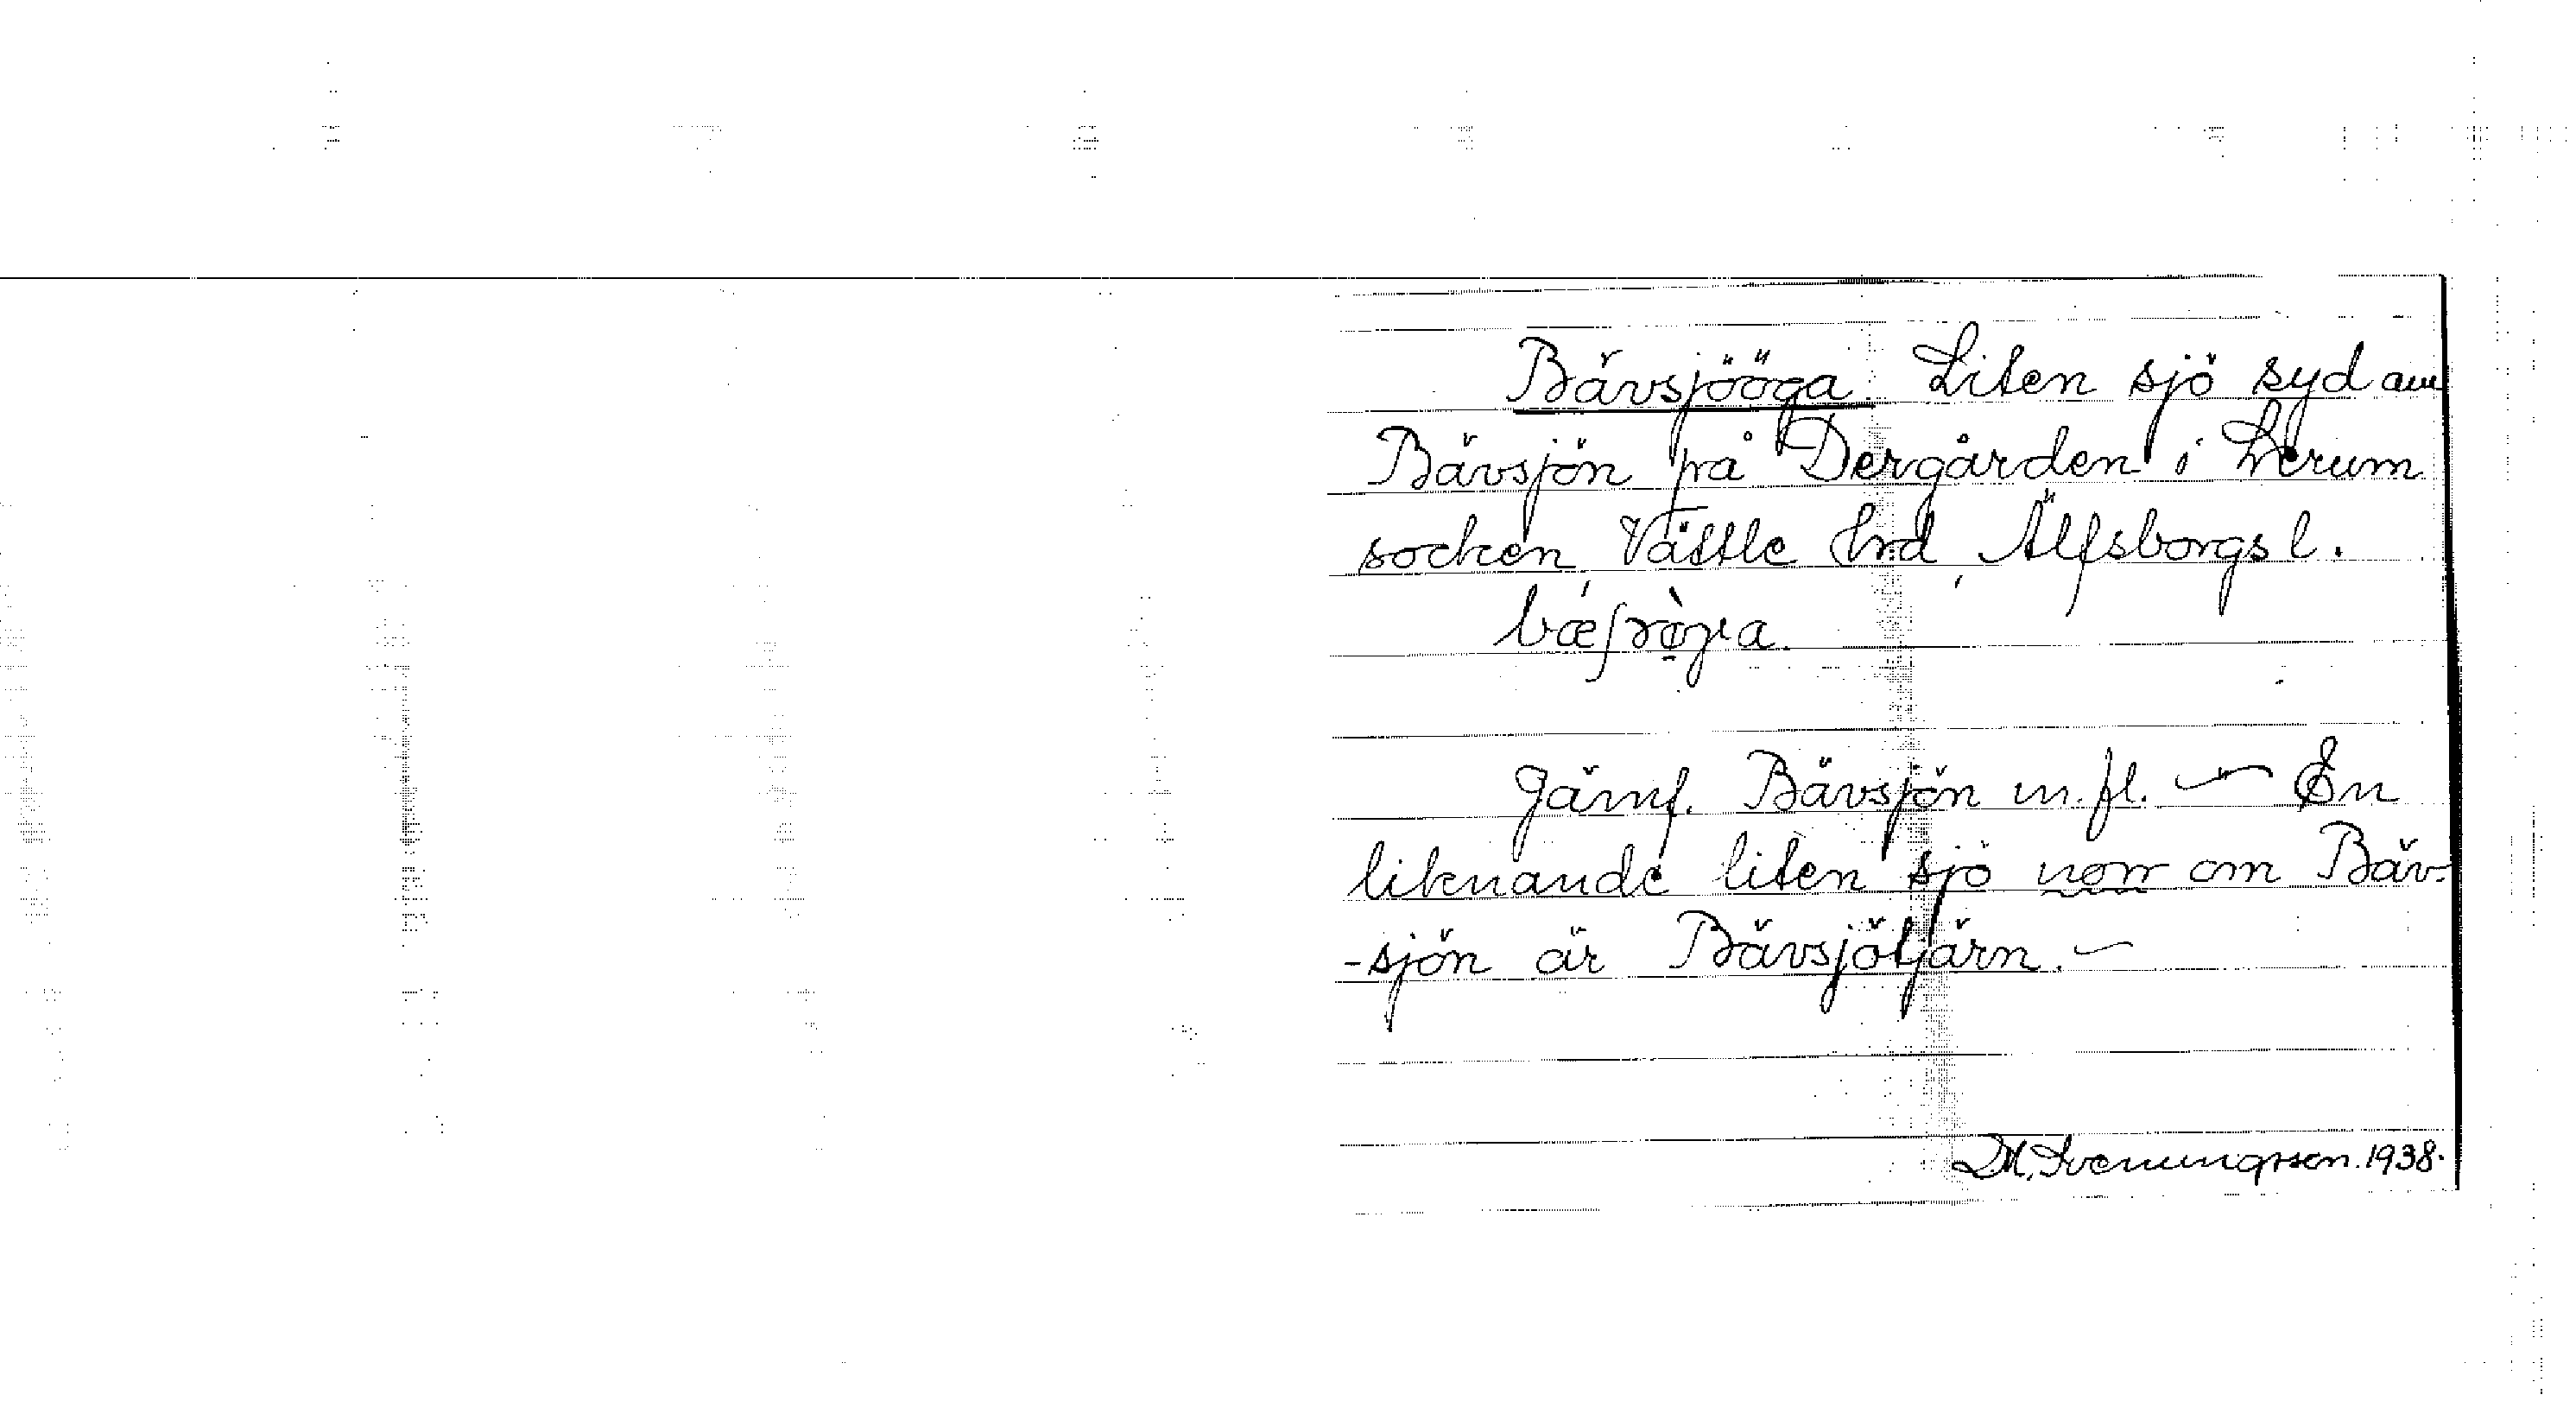 Bävsjööga. Liten sjö syd om
Bävsjön på Dergården i Lerum
socken, Vättle hrd, Älfsborgs l.
Jämf. Bävsjön m. fl. — En
liknande liten sjö norr om Bäv-
-sjön är Bävsjötjärn. —
D.M. Svenungsson. 1938.